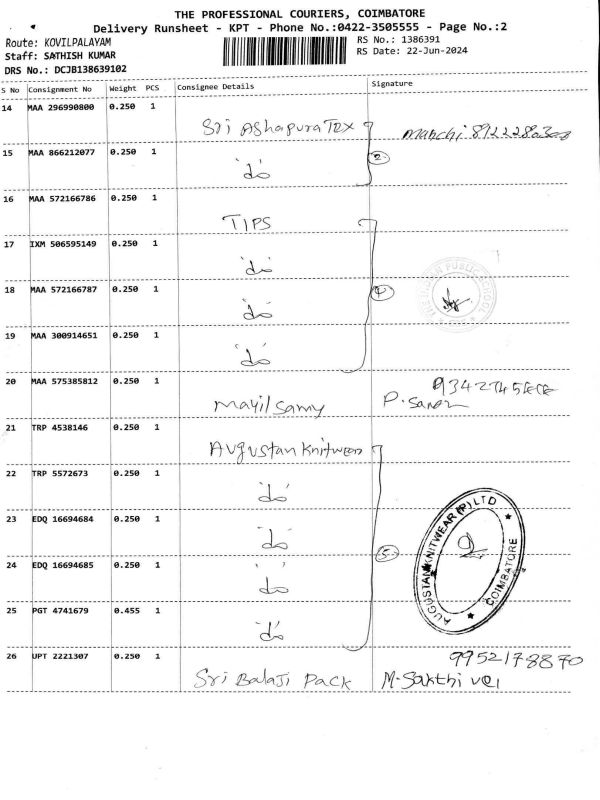 THE PROFESSIONAL COURIERS, COIMBATORE
Delivery Runsheet - KPT - Phone No.:0422-3505555 - Page No.:2
Route: KOVILPALAYAM
RS No.: 1386391
Staff: SATHISH KUMAR
RS Date: 22-Jun-2024
DRS No.: DCJB138639102
S No Consignment No Weight PCS Consignee Details Signature
14 MAA 296990800 0.250 1
Sri Ashapura Tex
15 MAA 866212077 0.250 1
2
'do'
16 MAA 572166786 0.250 1
TIPS
17 IXM 506595149 0.250 1
'do'
18 MAA 572166787 0.250 1
4
'do'
PUBLIC SCHOOL
19 MAA 300914651 0.250 1
'do'
20 MAA 575385812 0.250 1
Mayil Samy P.
21 TRP 4538146 0.250 1
Augustan Knitwear
22 TRP 5572673 0.250 1
'do'
23 EDQ 16694684 0.250 1
'do'
AUGUSTAN KNITWEAR (P) LTD
COIMBATORE
24 EDQ 16694685 0.250 1
5
'do'
25 PGT 4741679 0.455 1
'do'
26 UPT 2221307 0.250 1
9952178870
Sri Balaji Pack M. Sakthi vel